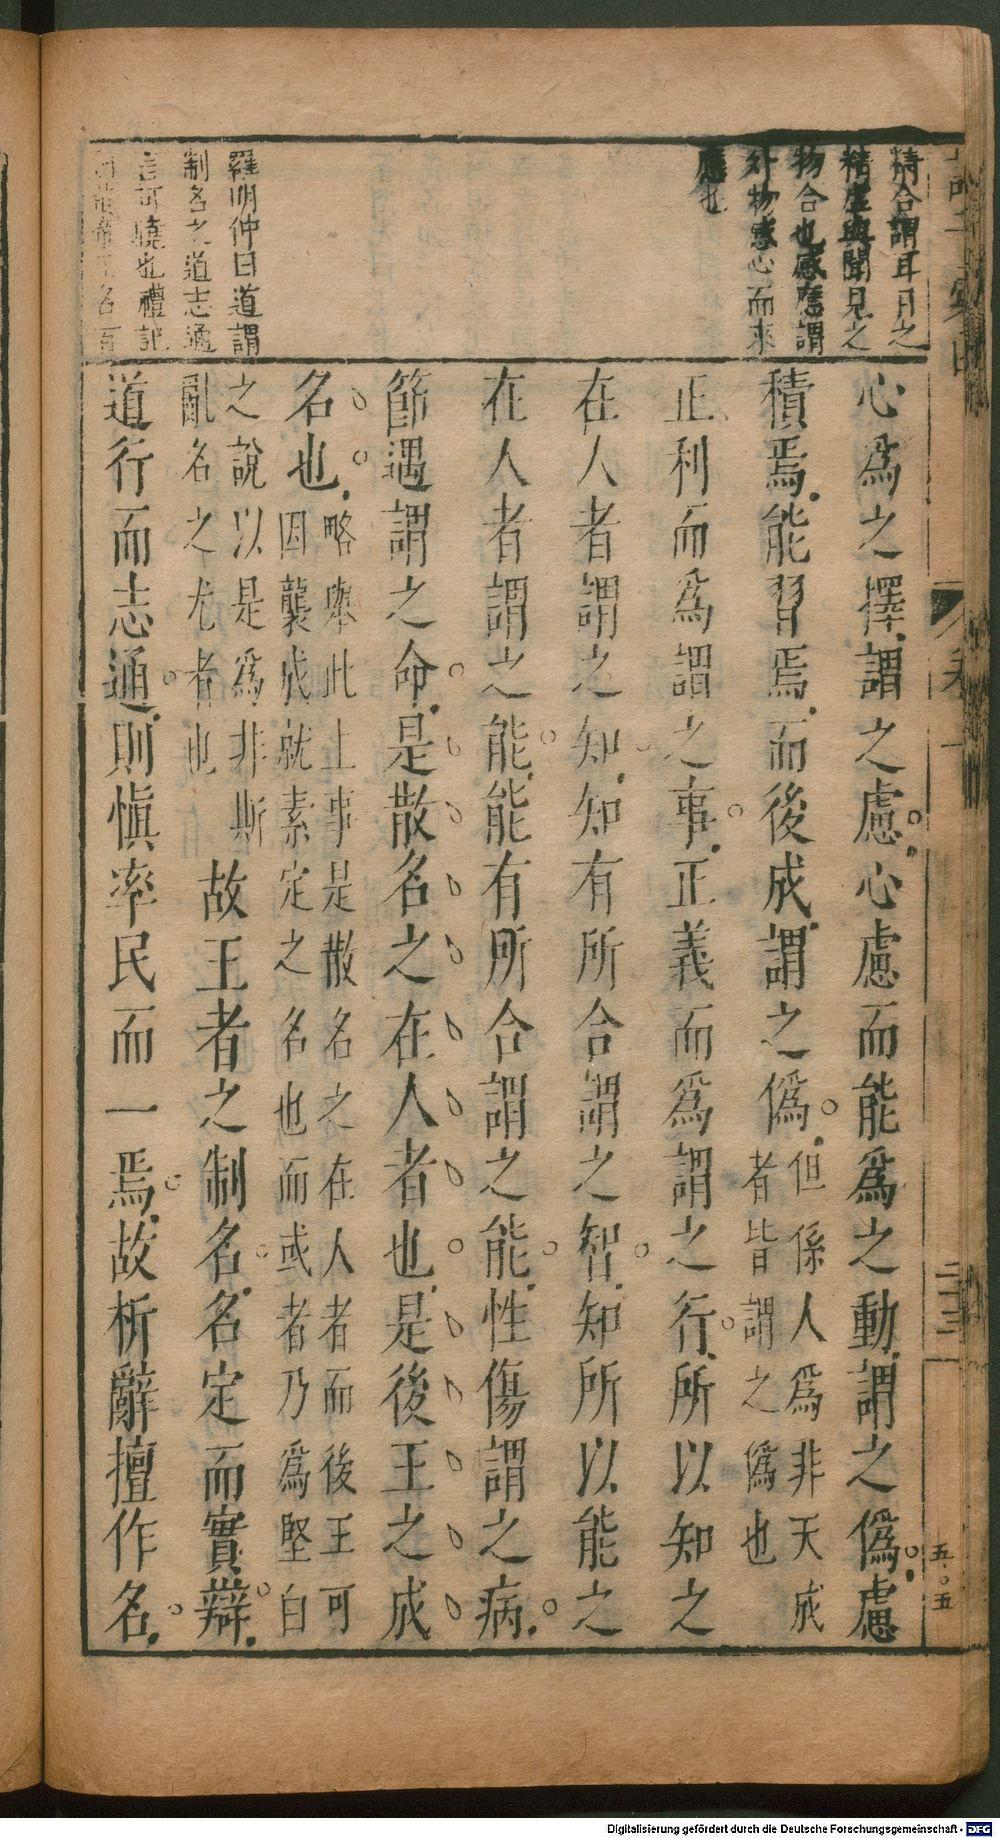 精合謂耳目之
精靈與聞見之
物合也感應謂
外物感心而來
應也
羅明仲曰道謂
制名之道志通
言可曉也禮記
帝正名百
心爲之擇謂之慮心慮而能爲之動謂之僞慮
積焉能習焉而後成謂之僞
但係人爲非天成
者皆謂之僞也
正利而爲謂之事正義而爲謂之行所以知之
在人者謂之知知有所合謂之智知所以能之
在人者謂之能能有所合謂之能性傷謂之病
節遇謂之命是散名之在人者也是後王之成
名也
略舉此上事是散名之在人者而後王可
因襲成就素定之名也而或者乃爲堅白
之說以是爲非斯
亂名之尤者也
故王者之制名名定而實辯
道行而志通則愼率民而一焉故析辭擅作名
卷十
二十三
五〇五
Digitalisierung gefördert durch die Deutsche Forschungsgemeinschaft - DFG